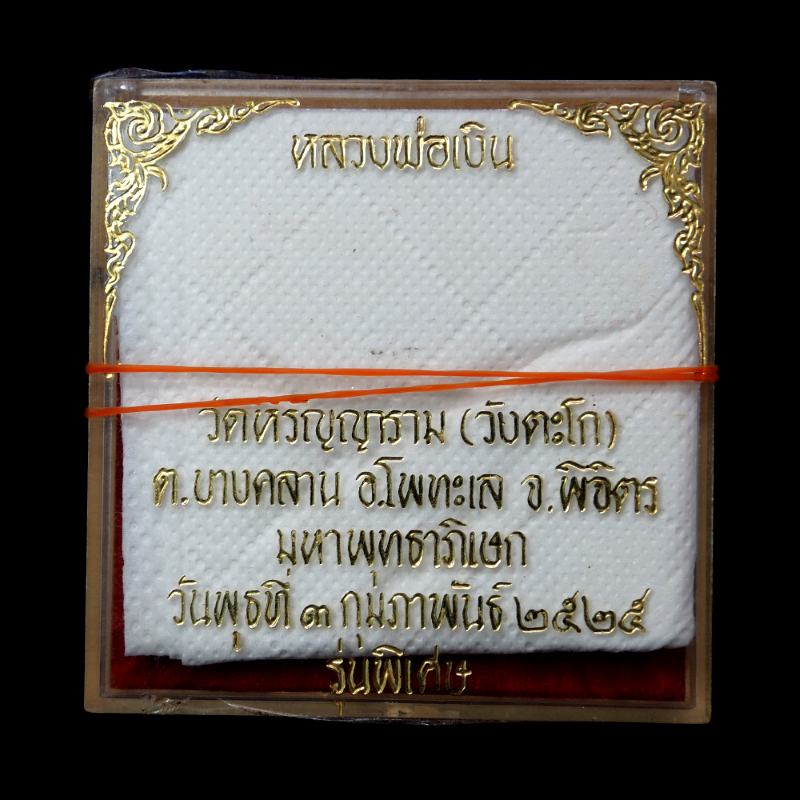 หลวงพ่อเงิน
วัดหิรัญญาราม (วังตะโก)
ต.บางคลาน อ.โพทะเล จ.พิจิตร
มหาพุทธาภิเษก
วันพุธที่ ๓ กุมภาพันธ์ ๒๕๒๕
รุ่นพิเศษ